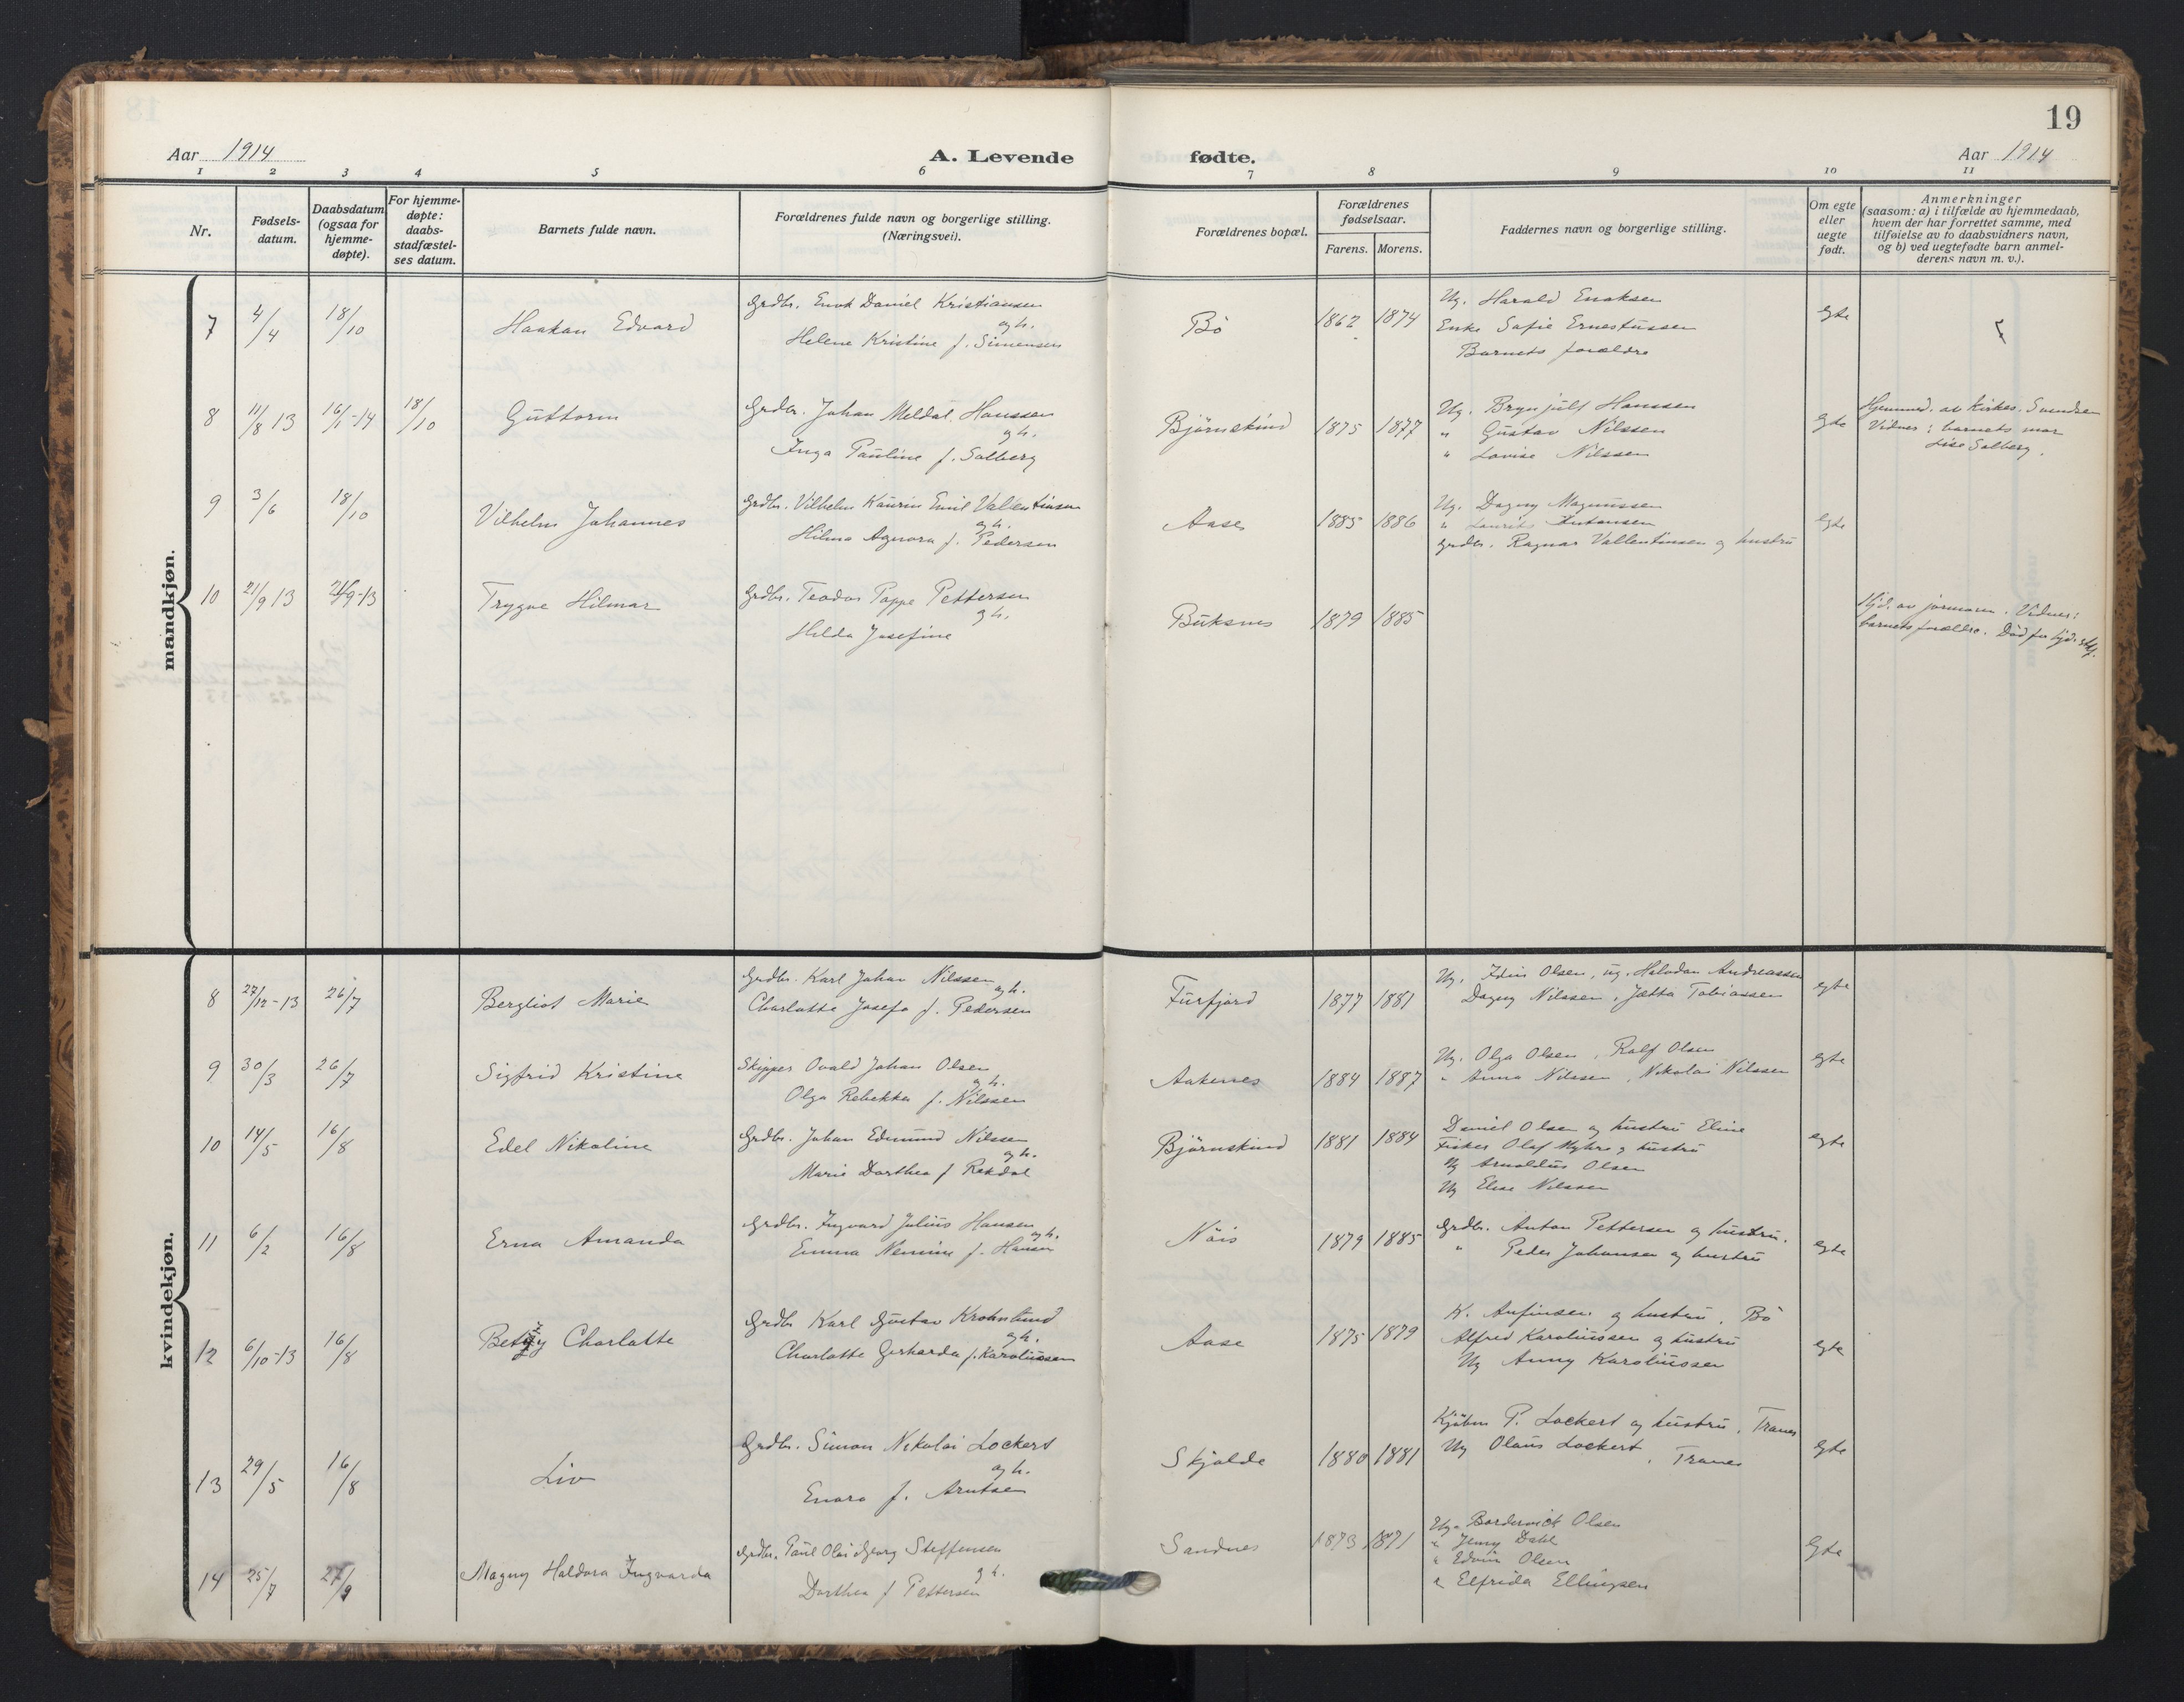 19
Aar 1914
A. Levende
fødte.
Aar 1914
1 2 3 4 5 6 7 8 9 10 11
Nr.
Fødsels-
datum.
Daabsdatum
(ogsaa for
hjemme-
døpte).
For hjemme-
døpte:
daabs-
stadfæstel-
ses datum.
Barnets fulde navn.
Forældrenes fulde navn og borgerlige stilling.
(Næringsvei).
Forældrenes bopæl.
Forældrenes
fødselsaar.
Farens. Morens.
Faddernes navn og borgerlige stilling.
Om egte
eller
uegte
født.
Anmerkninger
(saasom: a) i tilfælde av hjemmedaab,
hvem der har forrettet samme, med
tilføielse av to daabsvidners navn,
og b) ved uegtefødte barn anmel-
derens navn m. v.).
mandkjøn.
7 4/4 18/10 Haakon Edvard
Grdbr. Enok Daniel Kristiansen
og h.
Helene Kristine f. Simensen
Bö 1862 1874
Ug. Harald Enoksen
Enke Sofie Ernestussen
Barnets forældre
egte
8 11/8 13 16/1-14 18/10 Guttorm
Grdbr. Johan Meldal Hanssen
og h.
Inga Pauline f. Solberg
Björnskind 1875 1877
Ug. Brynjulf Hanssen
" Gustav Nilssen
" Lovise Nilssen
egte
Hjemmed. av Kirkes. Svendsen
Vidner: barnets mor
Lise Solberg.
9 3/6 18/10 Vilhelm Johannes
Grdbr. Vilhelm Kaurin Emil Vallentinsen
og h.
Hilma Agnora f. Pedersen
Aase 1885 1886
Ug. Dagny Magnussen
" Laurits Antonsen
Grdbr. Ragnar Vallentinsen og hustru
egte
10 21/9 13 21/9-13 Trygve Hilmar
Grdbr. Teodor Pappe Pettersen
og h.
Hilda Josefine
Buksnes 1879 1885
Hjd. av jormoren. Vidner:
barnets forældre. Död før hjd. stdf.
kvindekjøn.
8 27/12-13 26/7 Bergliot Marie
Grdbr. Karl Johan Nilssen
og h.
Charlotte Josefa f. Pedersen
Furfjord 1877 1881
Ug. Edin Olsen, ug. Halvdan Andreassen
Dagny Nilssen, Jætta Tobiassen
egte
9 30/3 26/7 Sigfrid Kristine
Skipper Ovald Johan Olsen
og h.
Olga Rebekka f. Nilssen
Aakenes 1884 1887
Ug. Olga Olsen, Rolf Olsen
" Anna Nilssen, Nikolai Nilssen
egte
10 14/5 16/8 Edel Nikoline
Grdbr. Johan Edmund Nilssen
og h.
Marie Dorthea f Rekdal
Björnskind 1881 1884
Daniel Olsen og hustru Eline
Fisker Olaf Myhre og hustru
Ug Arnoldus Olsen
Ug Elise Nilssen
egte
11 6/2 16/8 Erna Amanda
Grdbr. Ingvard Julius Hansen
og h.
Emma Nemine f. Hansen
Nöis 1879 1885
Grdbr. Anton Pettersen og hustru.
" Peder Johansen og hustru
egte
12 6/10-13 16/8 Betzy Charlotte
Grdbr Karl Gustav Krohnlund
og h.
Charlotte Gerharda f. Karoliussen
Aase 1875 1879
K. Anfinsen og hustru, Bö
Alfred Karoliussen og hustru
Ug Anny Karoliussen
egte
13 29/5 16/8 Liv
Grdbr. Simon Nikolai Lockert
og h.
Enora f. Arntsen
Skjolde 1880 1881
Kjöbm P. Lockert og hustru, Tranes
Ug Olaus Lockert, Tranes
egte
14 25/7 27/9 Magny Haldora Ingvarda
Grdbr. Paul Olai Georg Steffensen
og h.
Dorthea f Pettersen
Sandnes 1873 1871
Ug. Bordervick Olsen
" Jenny Dahl
" Edvin Olsen
" Elfrida Ellingsen
Egte